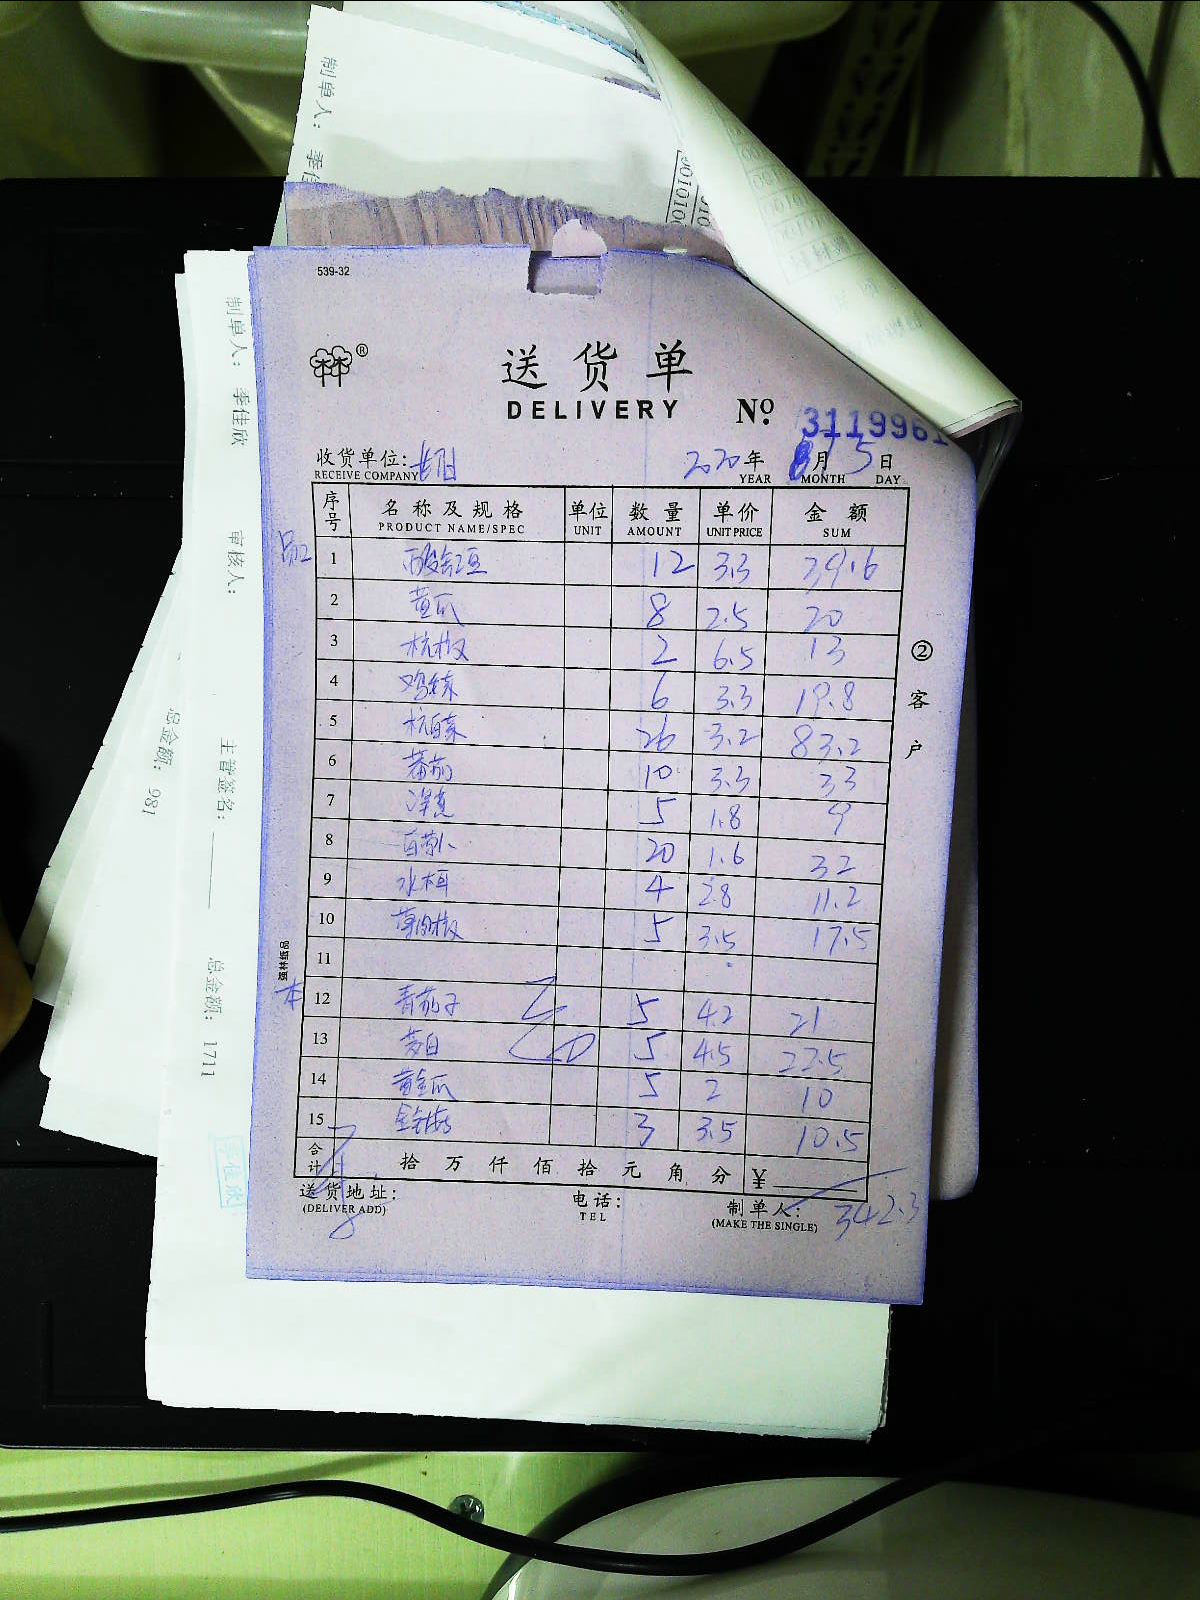 制单人：
539-32
®
送货单
DELIVERY
№ 3119961
收货单位：
RECEIVE COMPANY
2020年 8月 5日
YEAR MONTH DAY
序号 名称及规格 单位 数量 单价 金额
PRODUCT NAME/SPEC UNIT AMOUNT UNIT PRICE SUM
1 酸豇豆 12 3.3 39.6
2 黄瓜 8 2.5 20
3 杭椒 2 6.5 13
4 鸡毛菜 6 3.3 19.8
5 杭白菜 26 3.2 83.2
6 蕃茄 10 3.3 33
7 洋葱 5 1.8 9
8 20 1.6 32
9 4 2.8 11.2
10 薄肉椒 5 3.5 17.5
11
12 青茄子 5 4.2 21
13 茭白 5 4.5 22.5
14 黄金瓜 5 2 10
15 3 3.5 10.5
合计 拾 万 仟 佰 拾 元 角 分 ¥
342.3
送货地址： 电话： 制单人：
(DELIVER ADD) TEL (MAKE THE SINGLE)
②客户
强林纸品
本
制单人： 季佳欣 审核人： 主管签名： 总金额：1711
季佳欣
总金额：981